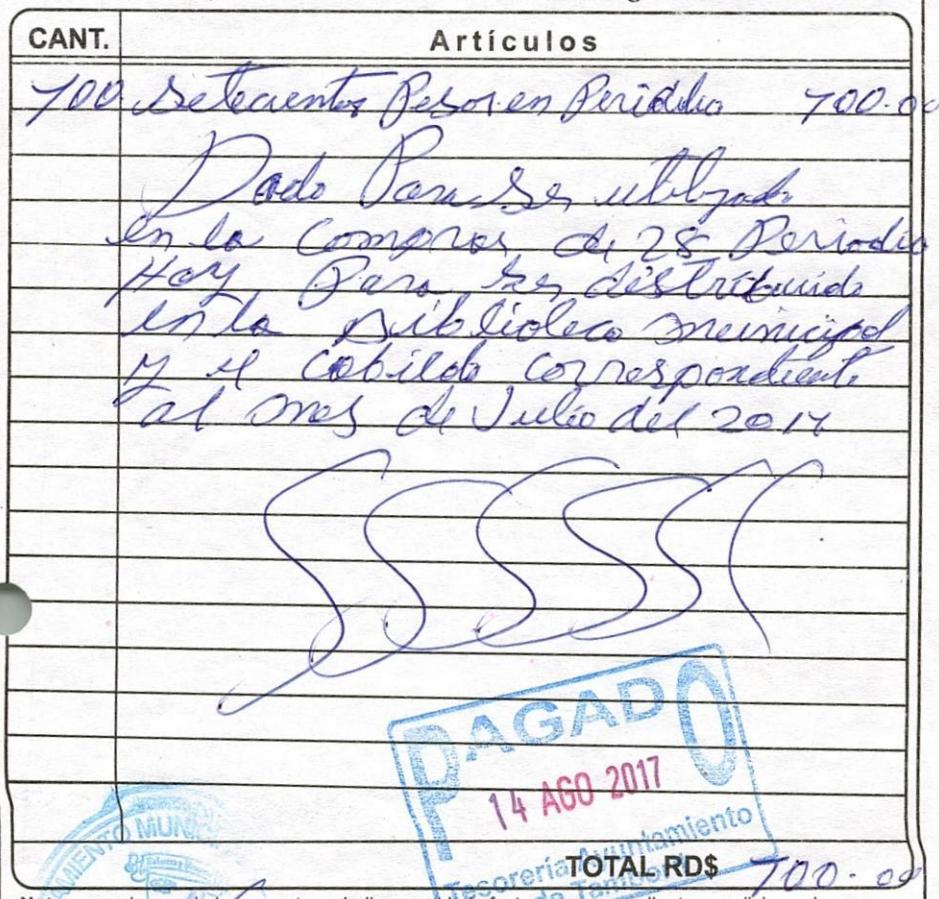 CANT. Artículos
700 Setecientos Pesos en Periódico 700.00
Dado Para Ser utilizado
en la Compras de 28 Periodico
Hoy, Para Ser distribuido
en la Biblioteca municipal
y el Cabildo Correspondiente
al mes de Julio del 2017
PAGADO
14 AGO 2017
Tesorería Ayuntamiento
de Tamboril
TOTAL RD$ 700.00